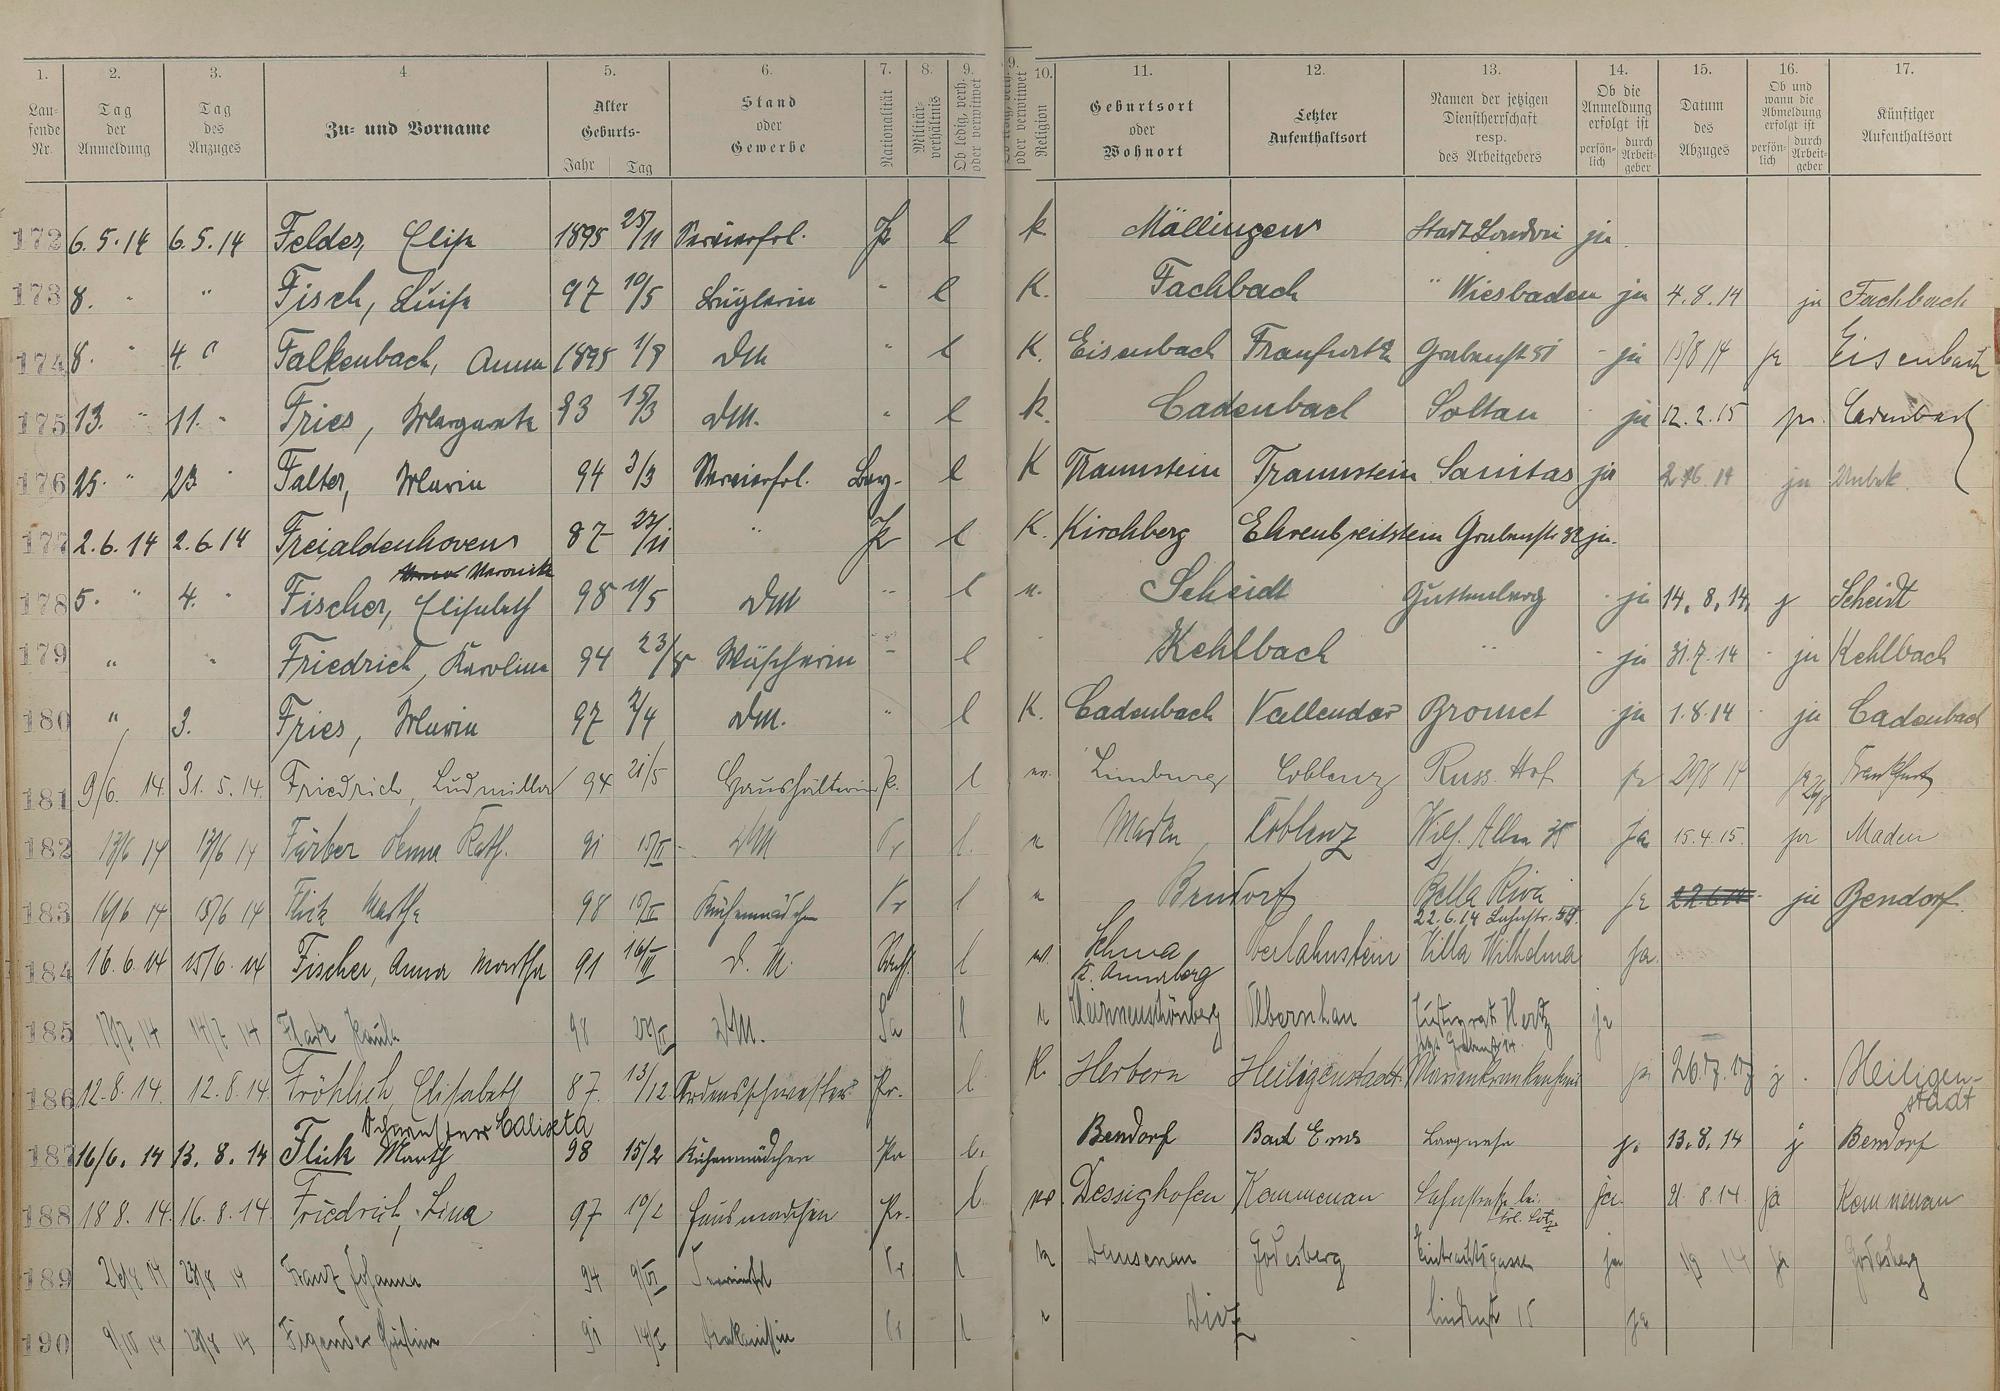 1. 2. 3. 4. 5. 6. 7. 8. 9. 9. 10. 11. 12. 13. 14. 15. 16. 17.
Lau-
fende
Nr.
Tag
der
Anmeldung
Tag
des
Anzuges
Zu- und Vorname
Alter
Geburts-
Jahr Tag
Stand
oder
Gewerbe
Nationalität
Militär-
verhältnis
Ob ledig, verh.
oder verwitwet
oder verwitwet
Religion
Geburtsort
oder
Wohnort
Letzter
Aufenthaltsort
Namen der jetzigen
Dienstherrschaft
resp.
des Arbeitgebers
Ob die
Anmeldung
erfolgt ist
persön-
lich
durch
Arbeit-
geber
Datum
des
Abzuges
Ob und
wann die
Abmeldung
erfolgt ist
persön-
lich
durch
Arbeit-
geber
Künftiger
Aufenthaltsort
172 6.5.14 6.5.14 Felder, Elise 1895 25/11 Servierfrl. Pr l k. Mällingen Stadt London ja
173 8. " " Fisch, Luise 97 10/5 Büglerin " l K. Fachbach " Wiesbaden ja 4.8.14 ja Fachbach
174 8. " 4. " Falkenbach, Anna 1895 1/8 DM " l K. Eisenbach Grabenstr - ja ja Eisenbach
175 13. " 11. " Fries, Margareta 93 15/3 DM. " l k. Cadenbach Soltau ja 12.2.15 ja. Cadenbach
176 25. " 23 " Falter, Maria 94 3/3 Servierfrl. Bay- l K Traunstein Traunstein Sanitas ja 14 ja Unbek.
177 2.6.14 2.6.14 Freialdenhoven 87 22/11 " Pr l K. Kirchberg Ehrenbreitstein Grabenstr 32 ja.
Veronika
178 5. " 4. " Fischer, Elisabeth 98 DM " l Scheidt Guttenberg - ja 14.8.14 Scheidt
179 " " Friedrich, Karolina 94 23/8 Wäscherin " l " Kehlbach " - ja 31.7.14 - ja Kehlbach
180 " 3. Fries, Maria 97 2/4 DM. " l K. Cadenbach Vallendar Bromet ja 1.8.14 ja Cadenbach
181 9/6. 14. 31.5.14. Friedrich, Ludmilla 94 21/5 Haushälterin Pr. l Limburg Coblenz Russ. Hof ja 29/8 14 ja Frankfurt
182 13/6 14 13/6 14 Färber Anna Kath. 91 DM Pr l. Maden Coblenz Wilh. Allee 35 Ja 15.4.15. ja Maden
183 16/6 14 15/6 14 Flick Martha 98 15/II Küchenmädchen Pr l Bendorf Bella Riva ja ja Bendorf.
22.6.14 Lahnstr. 59.
184 16.6.14 15/6.14 Fischer, Anna Martha 91 D. M. l Sehma Oberlahnstein Villa Wilhelma Ja.
b. Annaberg
185 14 14 98 DM. Sa l Olbernhau Justizrat Hertz ja
186 12.8.14. 12.8.14. Fröhlich, Elisabeth 87. 13/12 Ordensschwester Pr. l K. Herborn Heiligenstadt Marienkrankenhaus ja 26.7.17 Heiligen-
stadt
Schwester Calixta
187 16/6.14 13.8.14 Flick Marth 98 15/2 Küchenmädchen Pr l. Bendorf Bad Ems ja 13.8.14 Bendorf
188 18 8.14. 16.8.14. Friedrich, Lina 97 10/2 Hausmädchen Pr. l. Dessighofen Kemmenau Lahnstraße bei ja. 21 8.14 ja Kemmenau
189 14 14 Franz Johanna 94 9/VI Pr l Dausenau Godesberg Eintrachtsgasse ja 14 ja Godesberg
190 14 14 Pr l Diez Lindenstr 15 ja